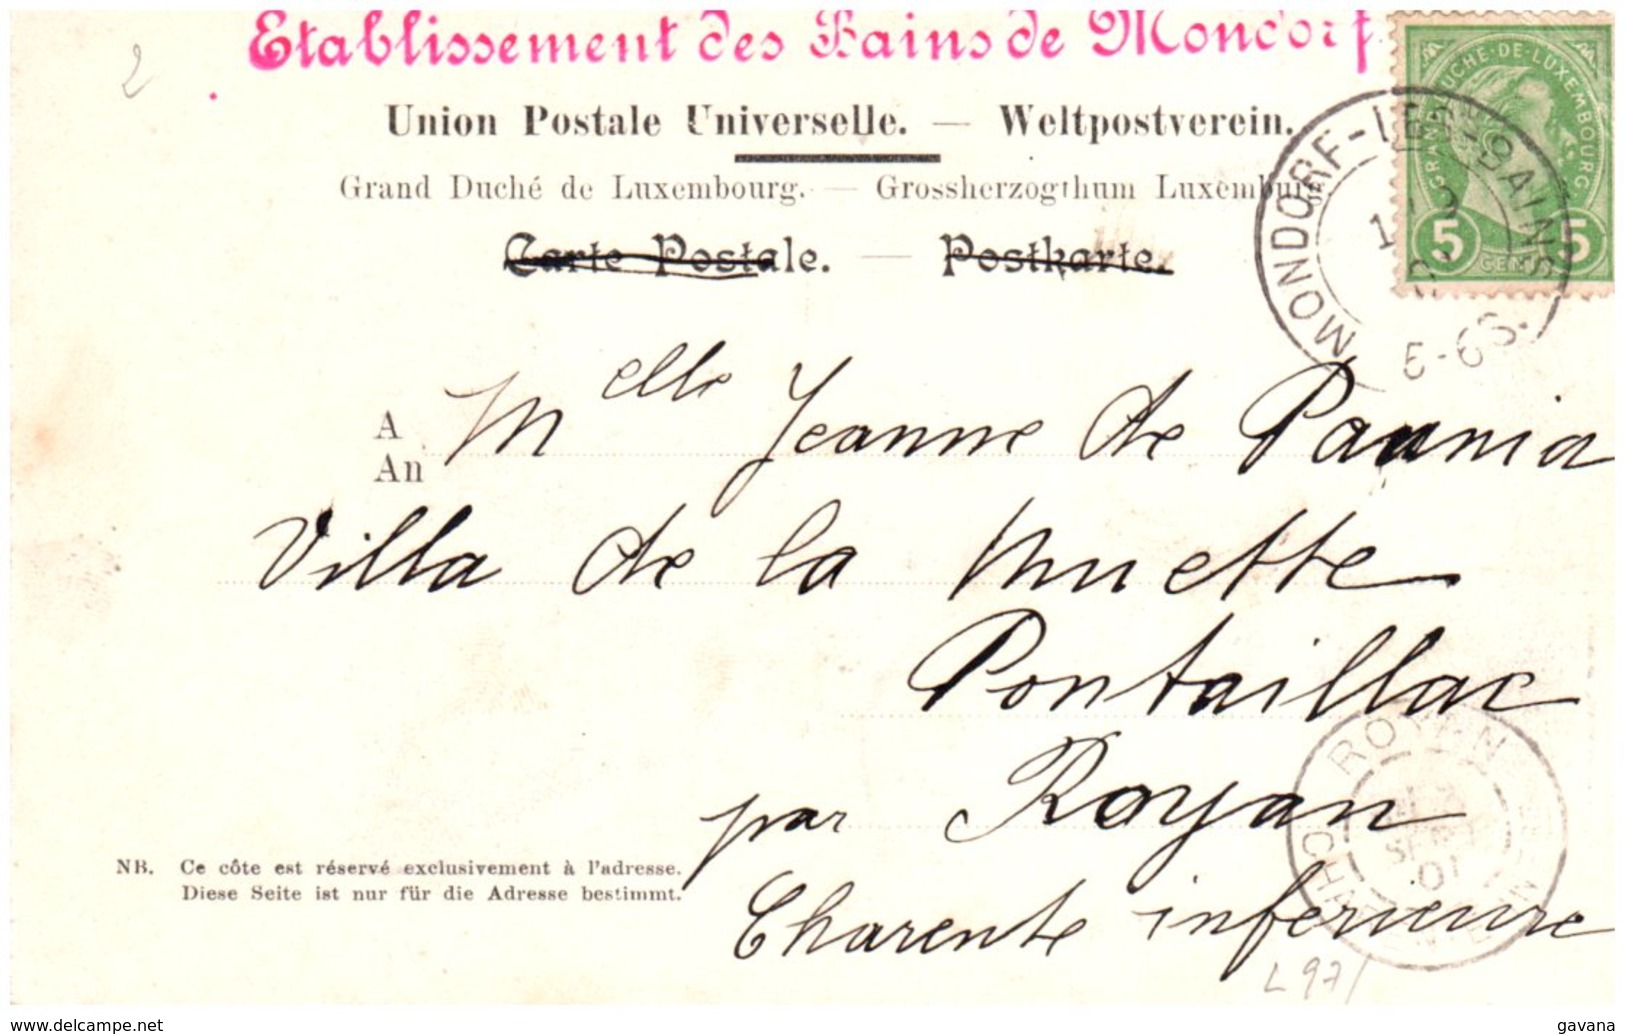 2
Etablissement des Bains de Mondorf
Union Postale Universelle. — Weltpostverein.
Grand Duché de Luxembourg. — Grossherzogthum Luxemburg.
Carte Postale. — Postkarte.
GRAND-DUCHÉ-DE-LUXEMBOURG
5 CENT 5
MONDORF-LES-BAINS
5-6S.
A Melle Jeanne de
An
Villa de la Muette
Pontaillac
par Royan
Charente inférieure
ROYAN
SEPT
01
NB. Ce côte est réservé exclusivement à l'adresse.
Diese Seite ist nur für die Adresse bestimmt.
L 97/
www.delcampe.net
gavana